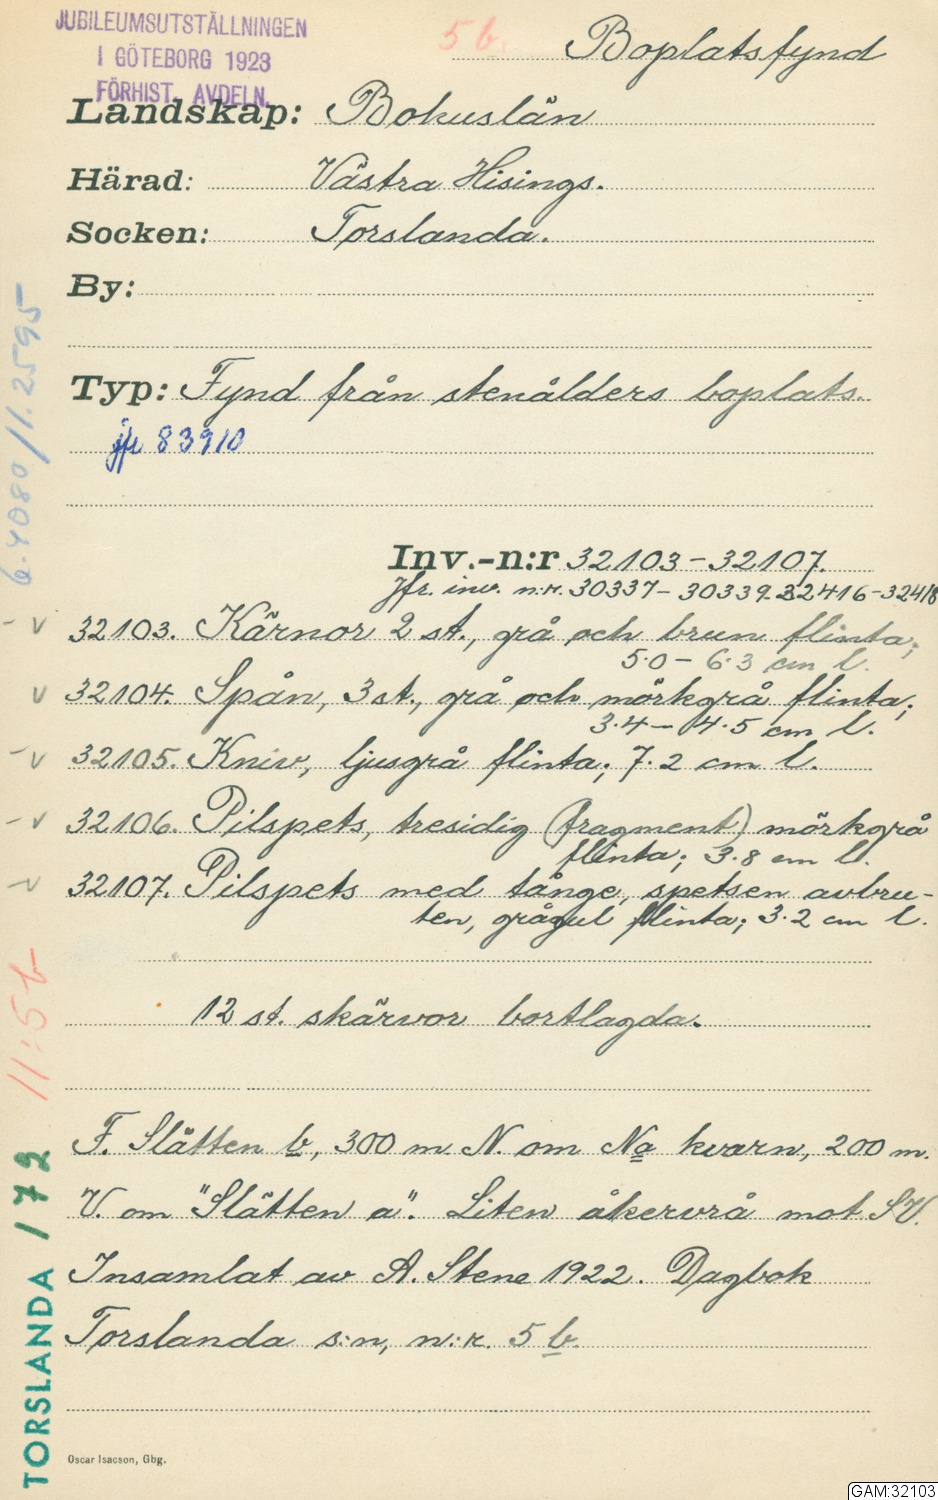 JUBILEUMSUTSTÄLLNINGEN
I GÖTEBORG 1923
FÖRHIST. AVDELN.
5 b.
Boplatsfynd
Landskap: Bohuslän
Härad: Västra Hisings.
Socken: Torslanda.
By:
Typ: Fynd från stenålders boplats.
jfr 83910
Inv.-n:r 32103-32107.
Jfr. inv. n:r. 30337-30339. 32416-32418
32103. Kärnor 2 st., grå och brun flinta;
5.0 - 6.3 cm l.
32104. Spån, 3 st., grå och mörkgrå flinta;
3.4 - 4.5 cm l.
32105. Kniv, ljusgrå flinta; 7.2 cm l.
32106. Pilspets, tresidig (fragment) mörkgrå
flinta; 3.8 cm l.
32107. Pilspets med tånge, spetsen avbru-
ten, grågul flinta; 3.2 cm l.
12 st. skärvor bortlagda.
F. Slätten b, 300 m. N. om Na kvarn, 200 m.
V. om "Slätten a". Liten åkervrå mot SV.
Insamlat av A. Stene 1922. Dagbok
Torslanda s:n, n:r. 5 b.
Oscar Isacson, Gbg.
6.4080/1.2595
11:5b
TORSLANDA /72
GAM:32103